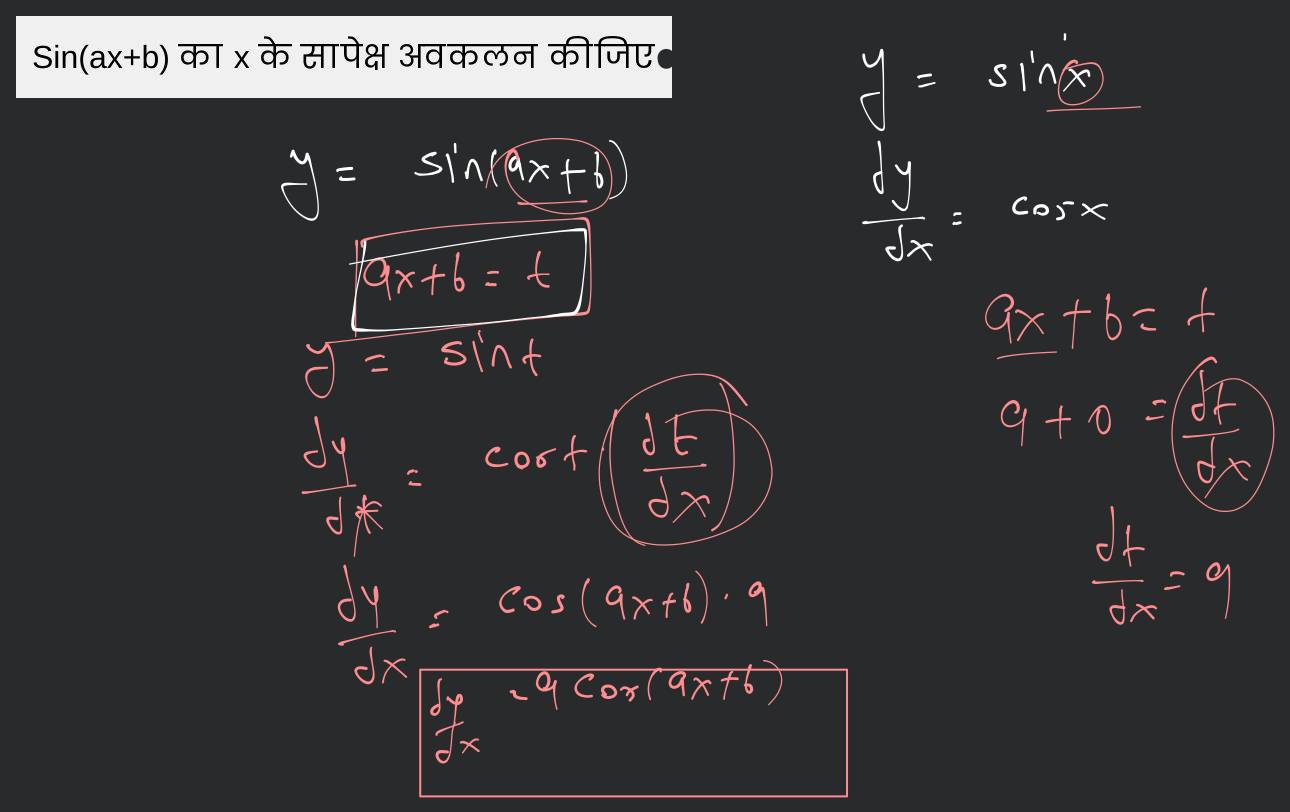 Sin(ax+b) का x के सापेक्ष अवकलन कीजिए
y = sin(ax+b)
ax+b = t
y = sint
dy/dx = cost dt/dx
dy/dx = cos(ax+b) · a
dy/dx = a cos(ax+b)
y = sinx
dy/dx = cosx
ax + b = t
a + 0 = dt/dx
dt/dx = a